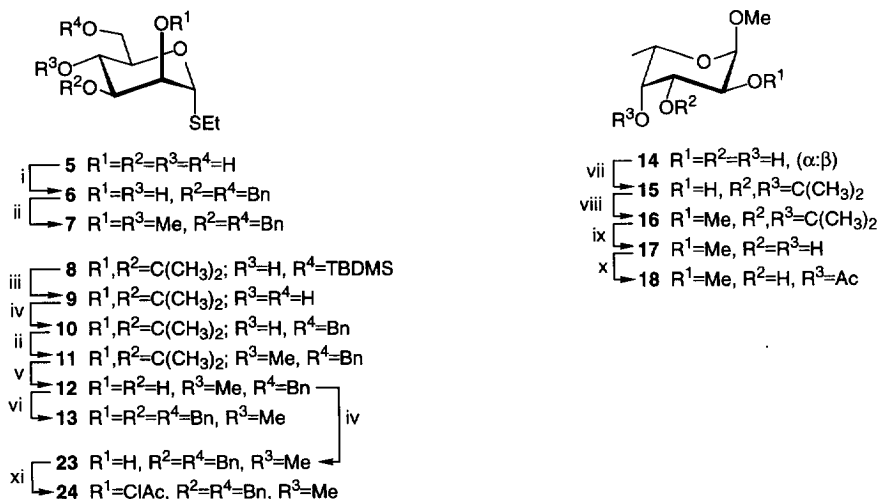 R⁴O OR¹
O
R³O
R²O
SEt
i 5 R¹=R²=R³=R⁴=H
ii 6 R¹=R³=H, R²=R⁴=Bn
7 R¹=R³=Me, R²=R⁴=Bn
iii 8 R¹,R²=C(CH₃)₂; R³=H, R⁴=TBDMS
iv 9 R¹,R²=C(CH₃)₂; R³=R⁴=H
ii 10 R¹,R²=C(CH₃)₂; R³=H, R⁴=Bn
v 11 R¹,R²=C(CH₃)₂; R³=Me, R⁴=Bn
vi 12 R¹=R²=H, R³=Me, R⁴=Bn
13 R¹=R²=R⁴=Bn, R³=Me
iv
xi 23 R¹=H, R²=R⁴=Bn, R³=Me
24 R¹=ClAc, R²=R⁴=Bn, R³=Me
OMe
O
OR¹
OR²
R³O
vii 14 R¹=R²=R³=H, (α:β)
viii 15 R¹=H, R²,R³=C(CH₃)₂
ix 16 R¹=Me, R²,R³=C(CH₃)₂
x 17 R¹=Me, R²=R³=H
18 R¹=Me, R²=H, R³=Ac